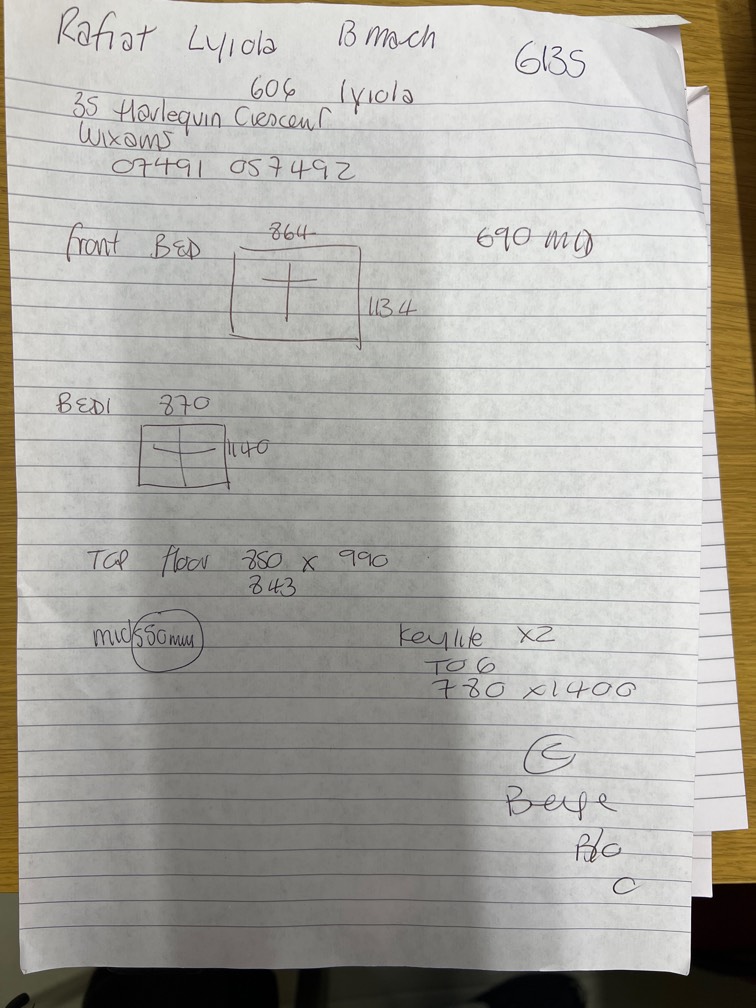 Rafiat Lyiola B mach 6135
606 Iyiola
35 Harlequin Crescent
Wixams
07491 057492
front BED 864 690 mid
1134
BED1 870
1140
TOP floor 850 x 990
843
mid 550mm
Keylite x2
T06
780 x1400
C
Beige
B/O
C